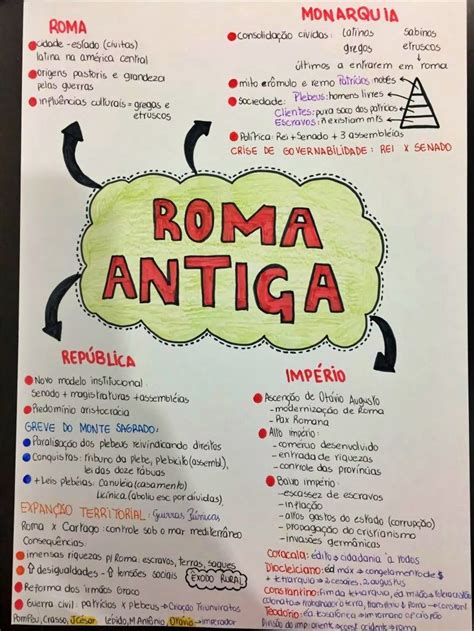 ROMA
cidade-estado (civitas)
latina na américa central
origens pastoris e grandeza
pelas guerras
influências culturais = gregos e
etruscos
MONARQUIA
Consolidação cividas: latinos sabinos
gregos etruscos
últimos a enfrarem em roma
mito erômulo e remo Patrícios: nobres
sociedade: Plebeus: homens livres
Clientes: puxa saco dos patrícios
Escravos: ñ existiam mts
Política: Rei + Senado + 3 assembléias
CRISE DE GOVERNABILIDADE: REI X SENADO
ROMA
ANTIGA
REPÚBLICA
Novo modelo institucional
Senado + magistraturas + assembléias
Predomínio aristocrácia
GREVE DO MONTE SAGRADO:
Paralisação dos plebeus reivindicando direitos
Conquistas: tribuno da plebe, plebicito (assembl),
lei das doze tábuas
+ Leis plebéias: Canuléia (casamento)
Licínica (aboliu esc. por dívidas)
EXPANÇÃO TERRITORIAL: Guerras Púnicas
Roma x Cartago: controle sob o mar mediterrâneo
Consequências:
imensas riquezas p/ Roma: escravos, terras, saques
⇧ desigualdades - ⇧ tensões sociais ÊXODO RURAL
Reforma dos irmãos Graco
Guerra civil: patrícios x plebeus → Criação Triunviratos
Pompeu, Crasso, J.César Lépido, M. Antônio, Otávio → imperador
IMPÉRIO
Ascenção de Otávio Augusto
- modernização de Roma
- Pax Romana
Alto império:
- comércio desenvolvido
- entrada de riquezas
- controle das províncias
Baixo império:
- escassez de escravos
- inflação
- altos gastos do estado (corrupção)
- propagação do cristianismo
- invasões germânicas
Caracala: édito → cidadania à todos
Diocleciano: éd máx → congelamento de $
+ tetrarquia → 2 césares, 2 augustus
Constantino: fim da tetrarquia, éd milão → tolerância
colonato → trabalhador à terra, transferiu p Roma → constant.
Teodósio: éd tessalônica → império romano cristão
Divisão do imp: oriente → const ocidente → roma